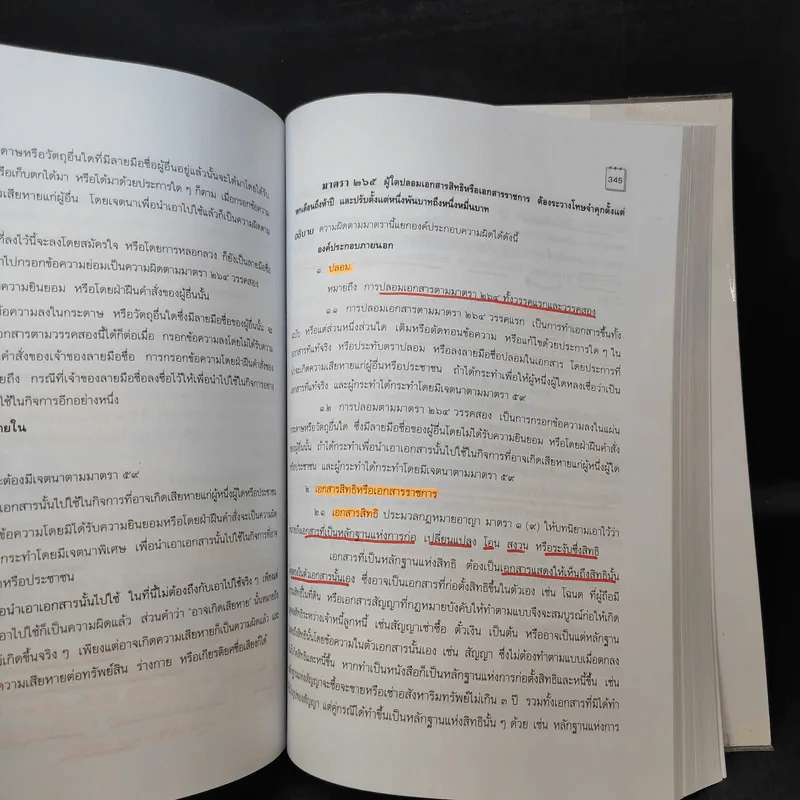 ะดาษหรือวัตถุอื่นใดที่มีลายมือชื่อผู้อื่นอยู่แล้วนั้นจะได้มาโดยได้รับ
รือเก็บตกได้มา หรือได้มาด้วยประการใด ๆ ก็ตาม เมื่อกรอกข้อความ
เสียหายแก่ผู้อื่น โดยเจตนาเพื่อนำเอาไปใช้แล้วก็เป็นความผิดตาม
ที่ลงไว้นี้จะลงโดยสมัครใจ หรือโดยการหลอกลวง ก็ยังเป็นลายมือชื่อ
าไปกรอกข้อความย่อมเป็นความผิดตามมาตรา ๒๖๔ วรรคสอง
ความยินยอม หรือโดยฝ่าฝืนคำสั่งของผู้อื่นนั้น
ข้อความลงในกระดาษ หรือวัตถุอื่นใดซึ่งมีลายมือชื่อของผู้อื่นนั้น จะ
เอกสารตามวรรคสองนี้ได้ก็ต่อเมื่อ กรอกข้อความลงโดยไม่ได้รับความ
คำสั่งของเจ้าของลายมือชื่อ การกรอกข้อความโดยฝ่าฝืนคำสั่งของ
ายถึง กรณีที่เจ้าของลายมือชื่อลงชื่อไว้ให้เพื่อนำไปใช้ในกิจการอย่าง
ใช้ในกิจการอีกอย่างหนึ่ง
ายใน
ะต้องมีเจตนาตามมาตรา ๕๙
เอกสารนั้นไปใช้ในกิจการที่อาจเกิดเสียหายแก่ผู้หนึ่งผู้ใดหรือประชาชน
ข้อความโดยมิได้รับความยินยอมหรือโดยฝ่าฝืนคำสั่งจะเป็นความผิด
กระทำโดยมีเจตนาพิเศษ เพื่อนำเอาเอกสารนั้นไปใช้ในกิจการที่อาจ
าหรือประชาชน
อนำเอาเอกสารนั้นไปใช้ ในที่นี้ไม่ต้องถึงกับเอาไปใช้จริง ๆ เพียงแต่
อาไปใช้ก็เป็นความผิดแล้ว ส่วนคำว่า "อาจเกิดเสียหาย" นั้นหมายถึง
เกิดขึ้นจริง ๆ เพียงแต่อาจเกิดความเสียหายก็เป็นความผิดแล้ว และ
ความเสียหายต่อทรัพย์สิน ร่างกาย หรือเกียรติยศชื่อเสียงก็ได้
345
มาตรา ๒๖๕ ผู้ใดปลอมเอกสารสิทธิหรือเอกสารราชการ ต้องระวางโทษจำคุกตั้งแต่
หกเดือนถึงห้าปี และปรับตั้งแต่หนึ่งพันบาทถึงหนึ่งหมื่นบาท
อธิบาย ความผิดตามมาตรานี้แยกองค์ประกอบความผิดได้ดังนี้
องค์ประกอบภายนอก
๑. ปลอม
หมายถึง การปลอมเอกสารตามมาตรา ๒๖๔ ทั้งวรรคแรกและวรรคสอง
๑.๑ การปลอมเอกสารตามมาตรา ๒๖๔ วรรคแรก เป็นการทำเอกสารขึ้นทั้ง
ฉบับ หรือแต่ส่วนหนึ่งส่วนใด เติมหรือตัดทอนข้อความ หรือแก้ไขด้วยประการใด ๆ ใน
เอกสารที่แท้จริง หรือประทับตราปลอม หรือลงลายมือชื่อปลอมในเอกสาร โดยประการที่
น่าจะเกิดความเสียหายแก่ผู้อื่นหรือประชาชน ถ้าได้กระทำเพื่อให้ผู้หนึ่งผู้ใดหลงเชื่อว่าเป็น
เอกสารที่แท้จริง และผู้กระทำได้กระทำโดยมีเจตนาตามมาตรา ๕๙
๑.๒ การปลอมตามมาตรา ๒๖๔ วรรคสอง เป็นการกรอกข้อความลงในแผ่น
กระดาษหรือวัตถุอื่นใด ซึ่งมีลายมือชื่อของผู้อื่นโดยไม่ได้รับความยินยอม หรือโดยฝ่าฝืนคำสั่ง
ของผู้อื่นนั้น ถ้าได้กระทำเพื่อนำเอาเอกสารนั้นไปใช้ในกิจการที่อาจเกิดเสียหายแก่ผู้หนึ่งผู้ใด
หรือประชาชน และผู้กระทำได้กระทำโดยมีเจตนาตามมาตรา ๕๙
๒. เอกสารสิทธิหรือเอกสารราชการ
๒.๑ เอกสารสิทธิ ประมวลกฎหมายอาญา มาตรา ๑ (๙) ให้บทนิยามเอาไว้ว่า
หมายถึงเอกสารที่เป็นหลักฐานแห่งการก่อ เปลี่ยนแปลง โอน สงวน หรือระงับซึ่งสิทธิ
เอกสารที่เป็นหลักฐานแห่งสิทธิ ต้องเป็นเอกสารแสดงให้เห็นถึงสิทธินั้น
ในตัวเอกสารนั้นเอง ซึ่งอาจเป็นเอกสารที่ก่อตั้งสิทธิขึ้นในตัวเอง เช่น โฉนด ที่ผู้ถือมี
สิทธิในที่ดิน หรือเอกสารสัญญาที่กฎหมายบังคับให้ทำตามแบบจึงจะสมบูรณ์ก่อให้เกิด
สิทธิระหว่างเจ้าหนี้ลูกหนี้ เช่นสัญญาเช่าซื้อ ตั๋วเงิน เป็นต้น หรืออาจเป็นแต่หลักฐาน
สิทธินั้นโดยข้อความในตัวเอกสารนั้นเอง เช่น สัญญา ซึ่งไม่ต้องทำตามแบบเมื่อตกลง
ได้สิทธิและหนี้ขึ้น หากทำเป็นหนังสือก็เป็นหลักฐานแห่งการก่อตั้งสิทธิและหนี้ขึ้น เช่น
ฐานแห่งสัญญาจะซื้อจะขายหรือเช่าอสังหาริมทรัพย์ไม่เกิน ๓ ปี รวมทั้งเอกสารที่มิได้ทำ
ของสัญญา แต่คู่กรณีได้ทำขึ้นเป็นหลักฐานแห่งสิทธินั้น ๆ ด้วย เช่น หลักฐานแห่งการ